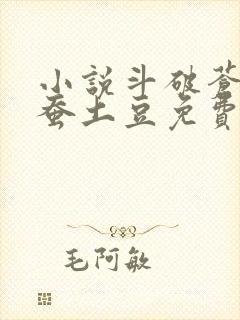 小說斗破蒼
蚕土豆免費
毛阿敏